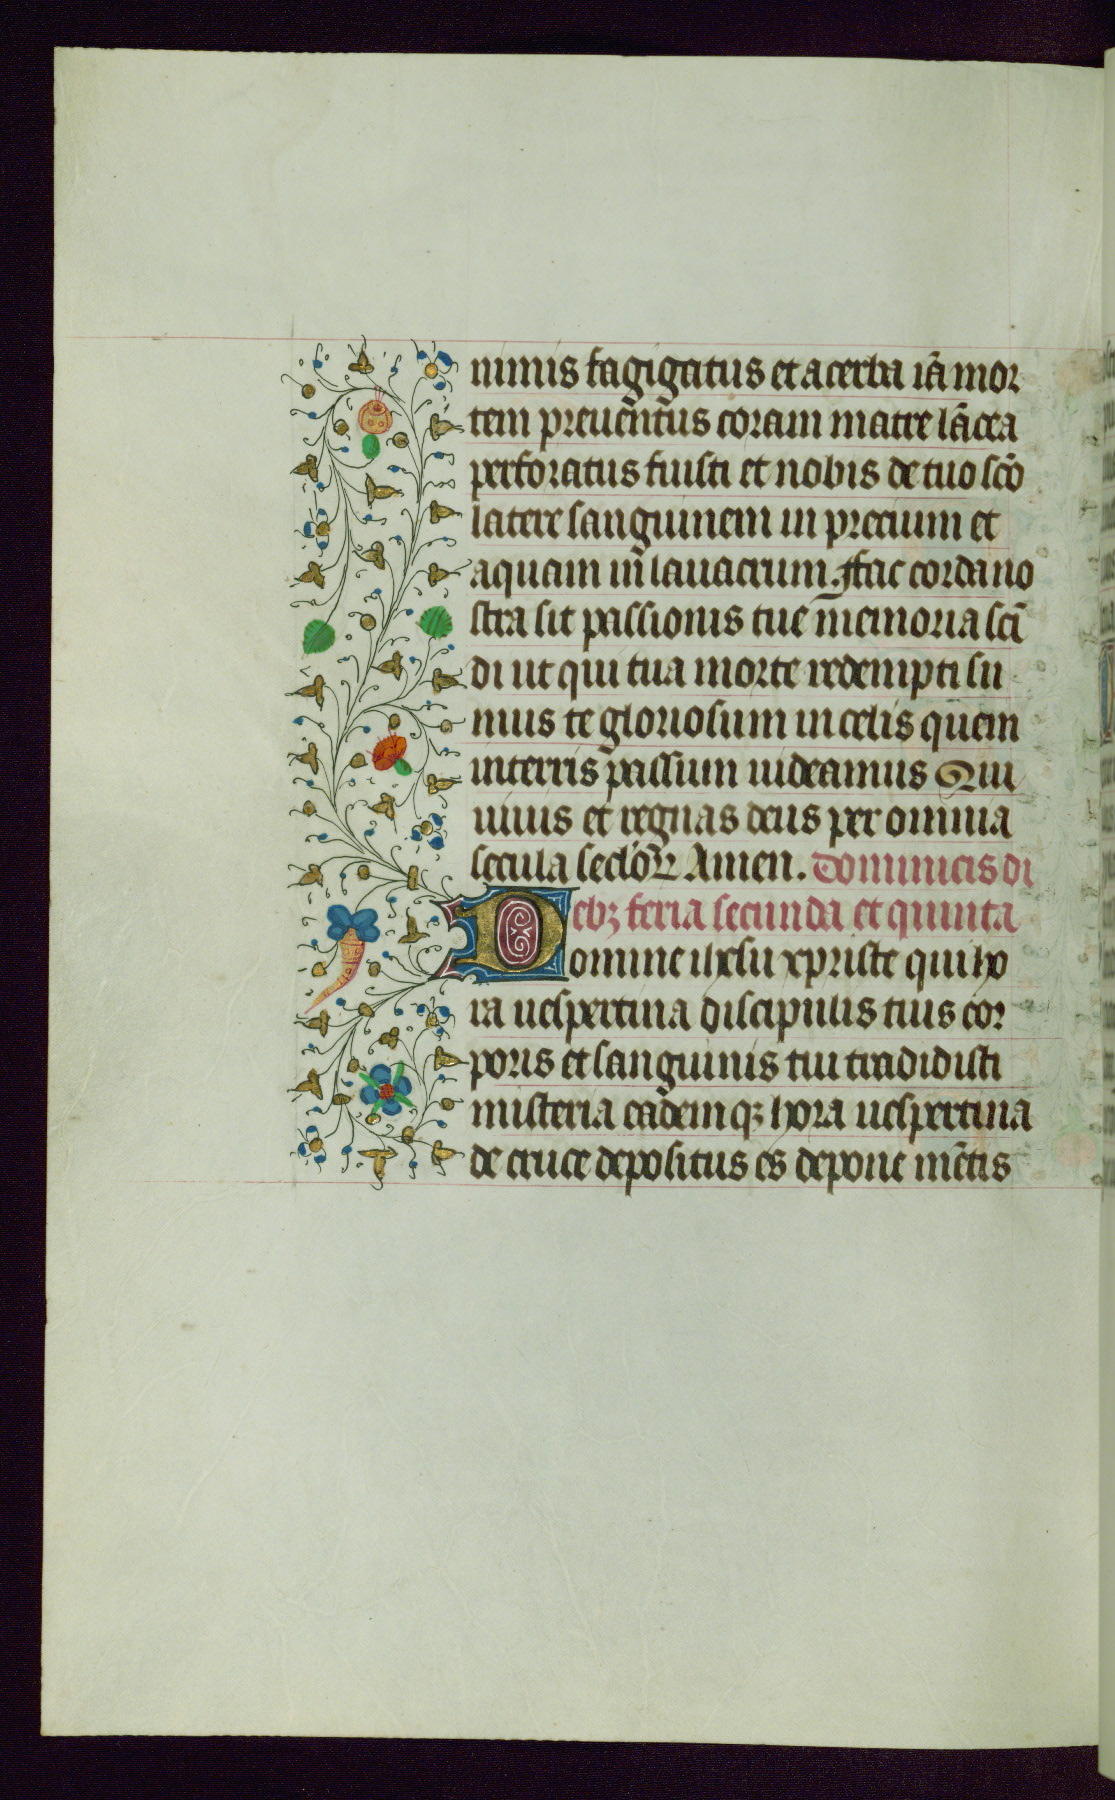 nimis fagigatus et acerba iā mor
tem preuēntus coram matre lācea
perforatus fuisti et nobis de tuo scō
latere sanguinem in precium et
aquam in lauacrum. Ffac corda no
stra sit passionis tue memoria scī
di ut qui tua morte redempti su
mus te gloriosum in celis quem
in terris passum uideamus Qui
uiuis et regnas deus per omnia
secula seclōꝝ Amen. Dominicis di
ebꝫ feria secunda et quinta
Domine ihesu xpriste qui ho
ra uespertina discipulis tuis cor
poris et sanguinis tui tradidisti
misteria eādemqꝫ hora uespertina
de cruce depositus es depone mētis